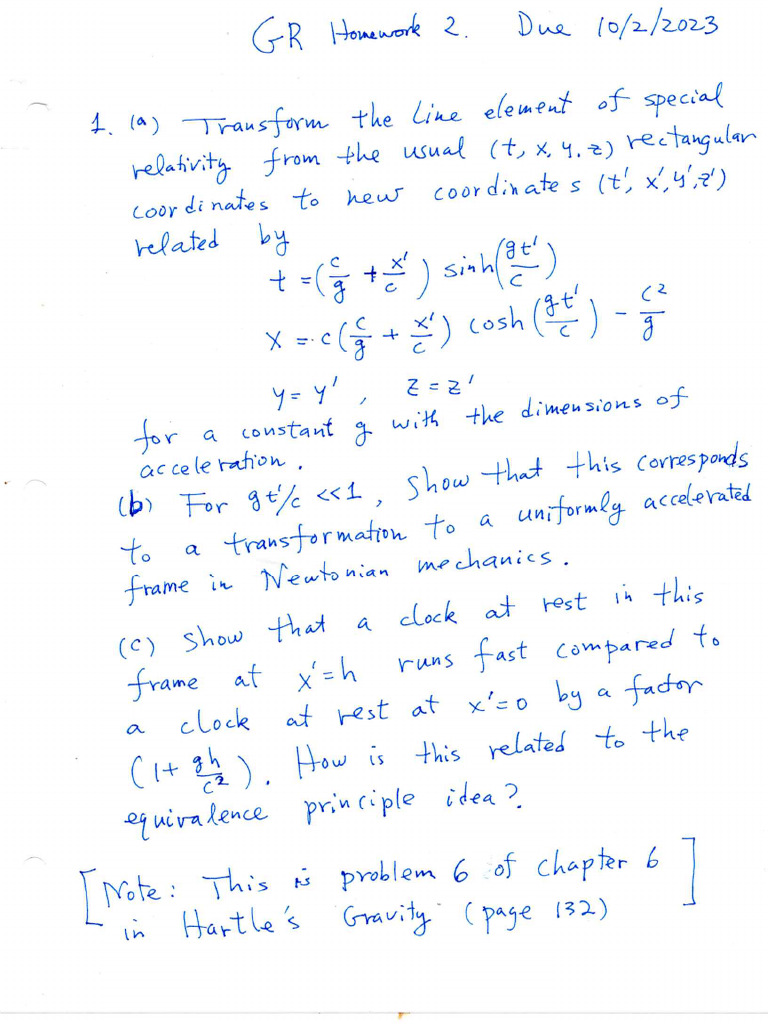 GR Homework 2. Due 10/2/2023
1. (a) Transform the line element of special
relativity from the usual (t, x, y, z) rectangular
coordinates to new coordinates (t', x', y', z')
related by
t = (c/g + x'/c) sinh(gt'/c)
x = c(c/g + x'/c) cosh(gt'/c) - c²/g
y = y', z = z'
for a constant g with the dimensions of
acceleration.
(b) For gt'/c <<1, show that this corresponds
to a transformation to a uniformly accelerated
frame in Newtonian mechanics.
(c) Show that a clock at rest in this
frame at x'=h runs fast compared to
a clock at rest at x'=0 by a factor
(1+ gh/c²). How is this related to the
equivalence principle idea?
[Note: This is problem 6 of chapter 6
in Hartle's Gravity (page 132)]